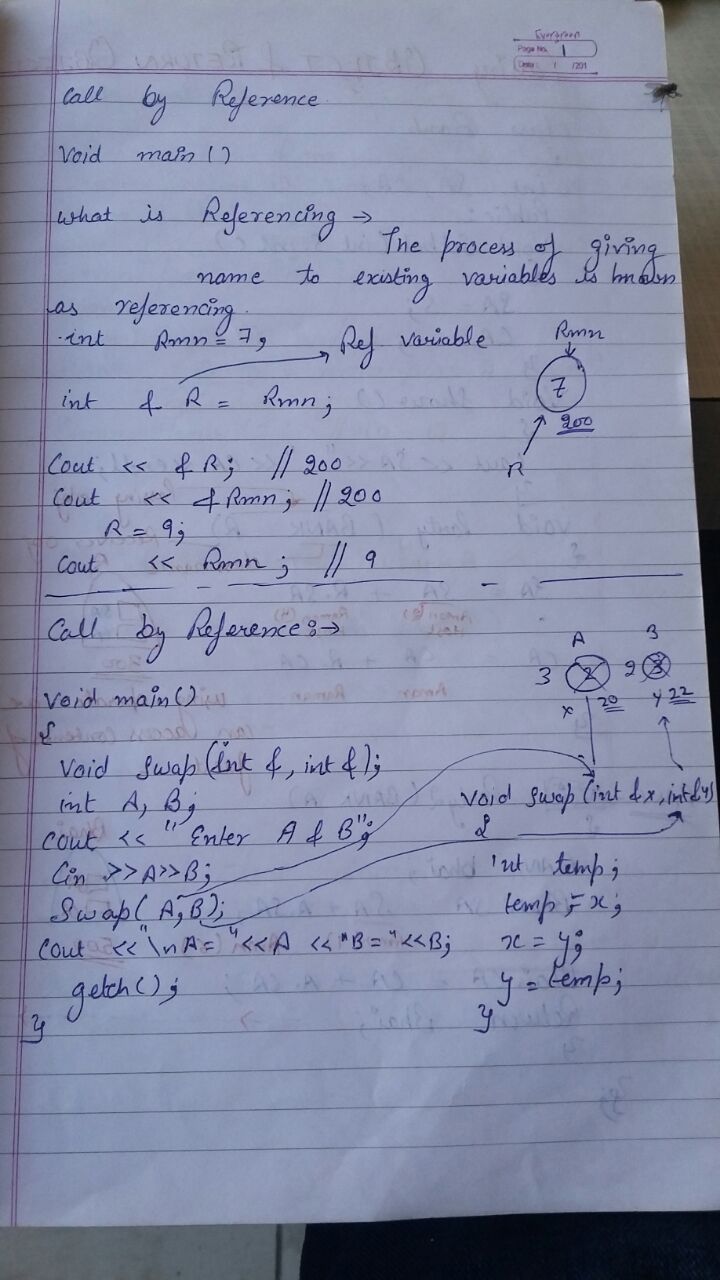 Evergreen
Page No. 1
Date: / /201
Call by Reference
Void main ()
What is Referencing →
The process of giving
name to existing variables is known
as referencing.
int Rmn = 7; Ref variable
Rmn
7
200
R
int & R = Rmn;
Cout << & R; // 200
Cout << & Rmn; // 200
R = 9;
Cout << Rmn ; // 9
Call by Reference:→
A B
3 2 2 3
x 20 y 22
Void main()
{
Void swap (int &, int &);
int A, B;
Cout << " Enter A & B";
Cin >>A>>B;
Swap( A,B);
Cout <<"\nA= "<<A <<"B="<<B;
getch();
}
Void swap (int &x, int &y)
{
int temp;
temp = x;
x = y;
y = temp;
}